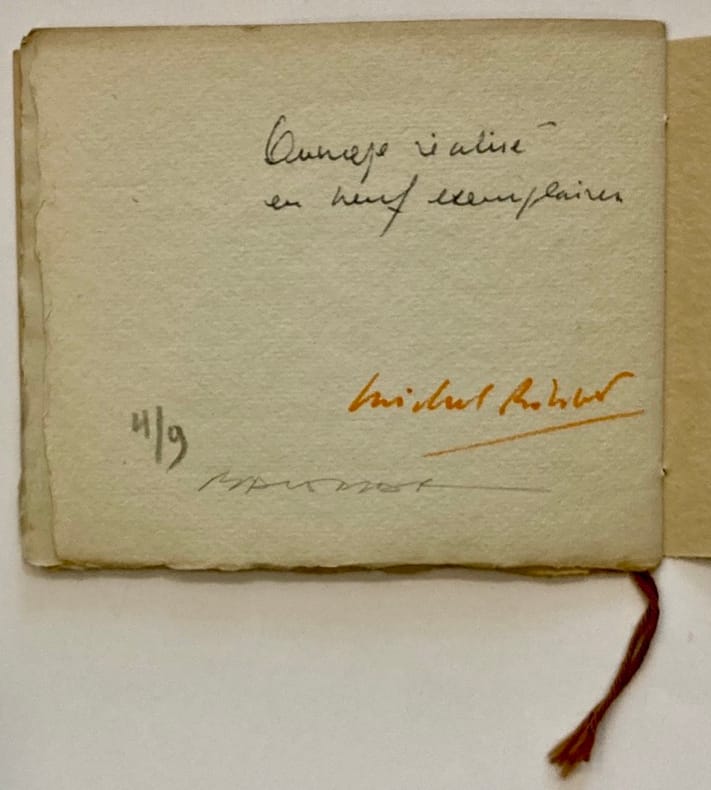 Ouvrage réalisé
en neuf exemplaires
Michel
4/9